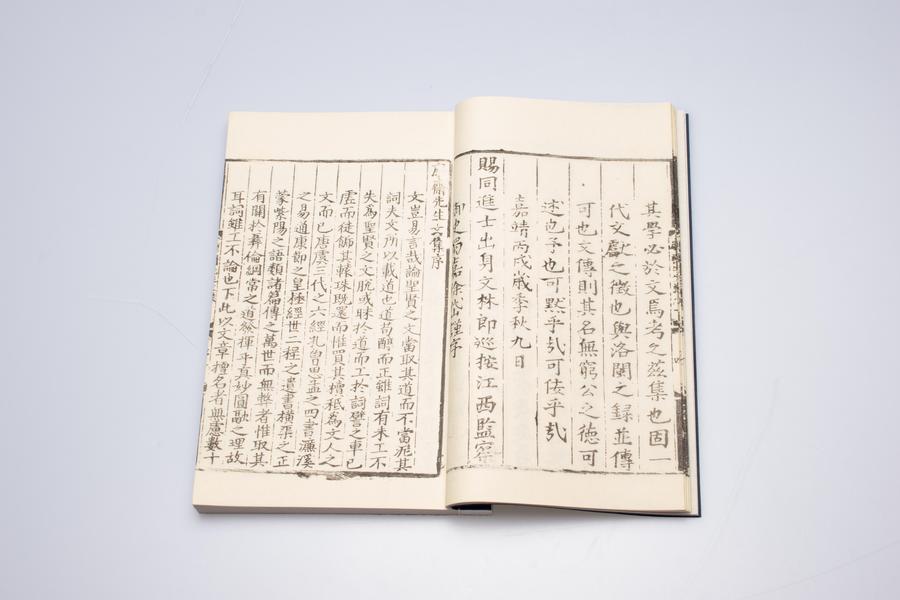 其學必於文焉考之茲集也固一
代文獻之徵也與洛閩之錄並傳
可也文傳則其名無窮公之德可
述也予也可默乎哉可佞乎哉
嘉靖丙戌歲季秋九日
賜同進士出身文林郎巡按江西監察
御史
先生文集序
文豈易言哉論聖賢之文當取其道而不當泥其
詞夫文所以載道也道苟醇而正雖詞有未工不
失為聖賢之文脫或昧於道而工於詞譬之車已
虛而徒飾其轅珠既還而惟買其櫝秪為文人之
文而已唐虞三代之六經孔曾思孟之四書濂溪
之易通康節之皇極經世二程之遺書橫渠之正
蒙紫陽之語類諸篇傳之萬世而無弊者惟取其
有關於彝倫綱常之道發揮乎真妙圓融之理故
耳詞雖工不論也下此以文章擅名者無慮數十